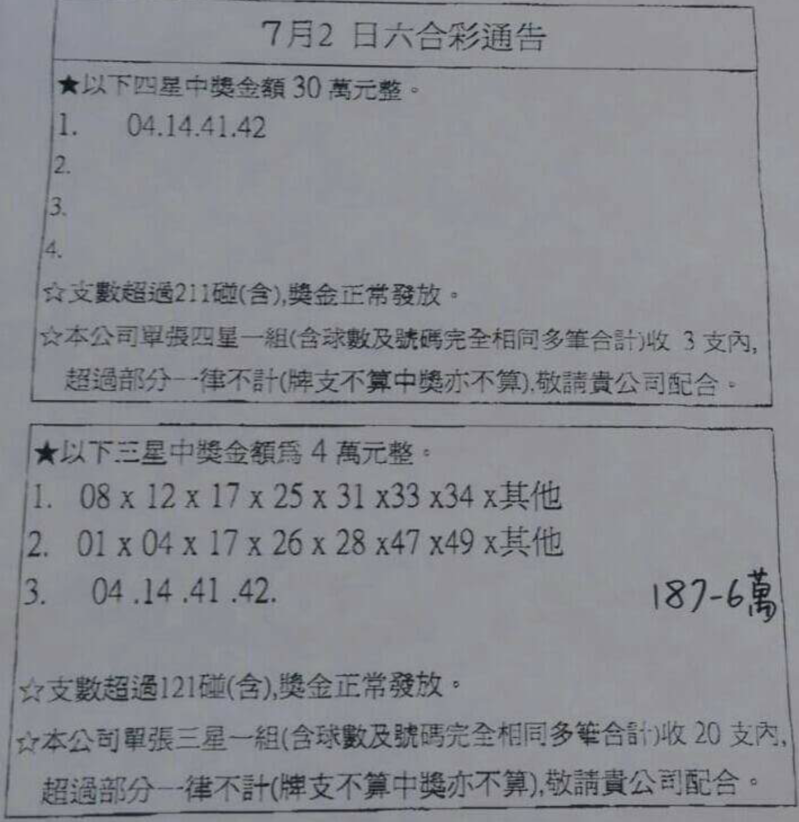 7月2 日六合彩通告
★以下四星中獎金額 30 萬元整。
1. 04.14.41.42
2.
3.
4.
☆支數超過211碰(含),獎金正常發放。
☆本公司單張四星一組(含球數及號碼完全相同多筆合計)收 3 支內,
超過部分一律不計(牌支不算中獎亦不算),敬請貴公司配合。
★以下三星中獎金額為 4 萬元整。
1. 08 x 12 x 17 x 25 x 31 x33 x34 x其他
2. 01 x 04 x 17 x 26 x 28 x47 x49 x其他
3. 04 .14 .41 .42.
187-6萬
☆支數超過121碰(含),獎金正常發放。
☆本公司單張三星一組(含球數及號碼完全相同多筆合計)收 20 支內,
超過部分一律不計(牌支不算中獎亦不算),敬請貴公司配合。